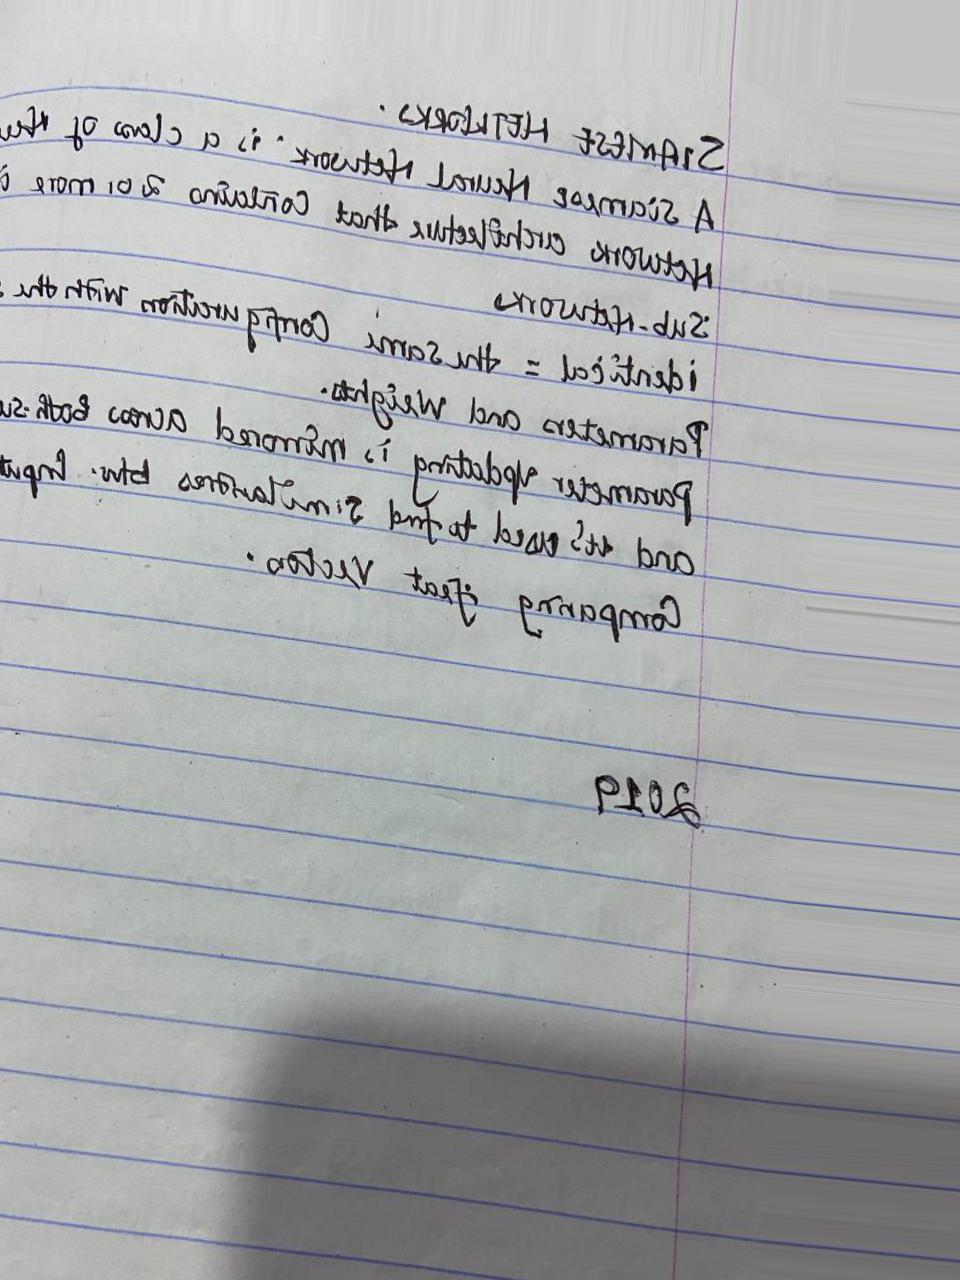 SIAMESE NETWORKS.
A Siamese Neural Network is a class of Neu
Network architecture that Contains 2 or more i
Sub-Networks
identical = the same Configuration with the s
Parameters and Weights.
parameter updating is mirrored across both su
and it's used to find Similarities btw. Input
Comparing feat Vectors.
2019